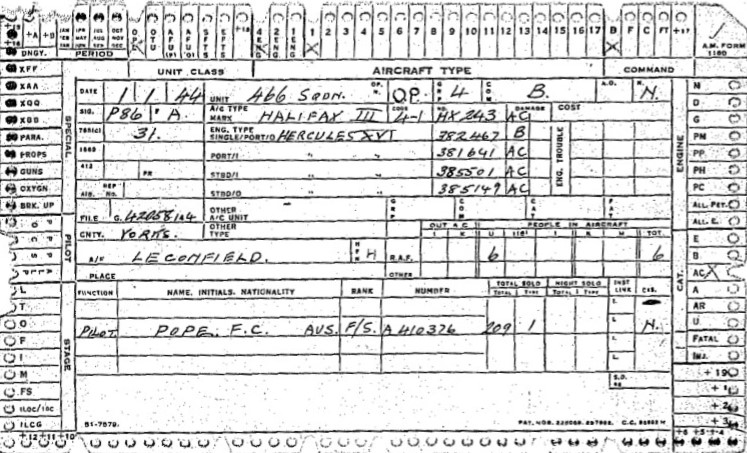 +A +B JAN FEB MAR APR MAY JUN JUL AUG SEP OCT NOV DEC OPE OTU AFU (P) AFU (O) SFTS EFTS +15 4 ENG 2 ENG 1 ENG 1 X 2 3 4 5 6 7 8 9 10 11 12 13 14 15 16 17 B X F C FT +17
DNGY. PERIOD A.M. FORM 1180
UNIT CLASS AIRCRAFT TYPE COMMAND
XFF
XAA
XQQ
XDD
PARA.
PROPS
GUNS
OXYGN
BRK. UP
SPECIAL
DATE 1 1 44 UNIT 466 SQDN. OP. N. OP. GRP 4 COM B. A.D. R. N.
SIG. P86 F A. A/C TYPE MARK HALIFAX III CODE 4-1 HX 243 DAMAGE AC COST
765(C) 31. ENG. TYPE SINGLE/PORT/O HERCULES XVI 382467 B
PORT/I " " 381641 AC
412 PR STBD/I " " 385501 AC
REP No. STBD/O 385149 AC
ENG. TROUBLE
FILE G. OTHER A/C UNIT GRP COM CAT FAT
CNTY. YORKS. OTHER TYPE OUT A C PEOPLE IN AIRCRAFT
I K U I(S) I K M TOT.
A/F LECONFIELD. H R.A.F. 6 6
PLACE OTHER
PILOT
FUNCTION NAME. INITIALS. NATIONALITY RANK NUMBER TOTAL SOLO NIGHT SOLO INST LINK CAS.
TOTAL TYPE TOTAL TYPE
PILOT. POPE. F.C. AUS. F/S. A 410376 209 1 N.
STAGE
S.D. RS.
L
T
O
F
I
M
FS
ILOC/IOC
ILCG
ENGINE
N
D
G
PM
PP
PH
PC
ALL PET.
ALL E.
CAT.
E
B
AC X
A
AR
U
FATAL
INJ.
+19
+1
+2
+3
51-7579. PAT. NOS. C.C.
+12 +11 +10 +6 +5 +4